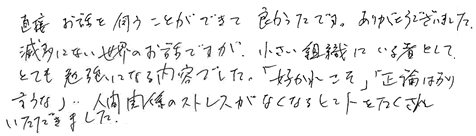 直接 お話を伺うことができて 良かったです。ありがとうございました。
滅多にない世界のお話ですが、小さい組織にいる者として
とても勉強になる内容でした。「好かれこそ」「正論ばかり
言うな」‥ 人間関係のストレスがなくなるヒントをたくさん
いただきました。